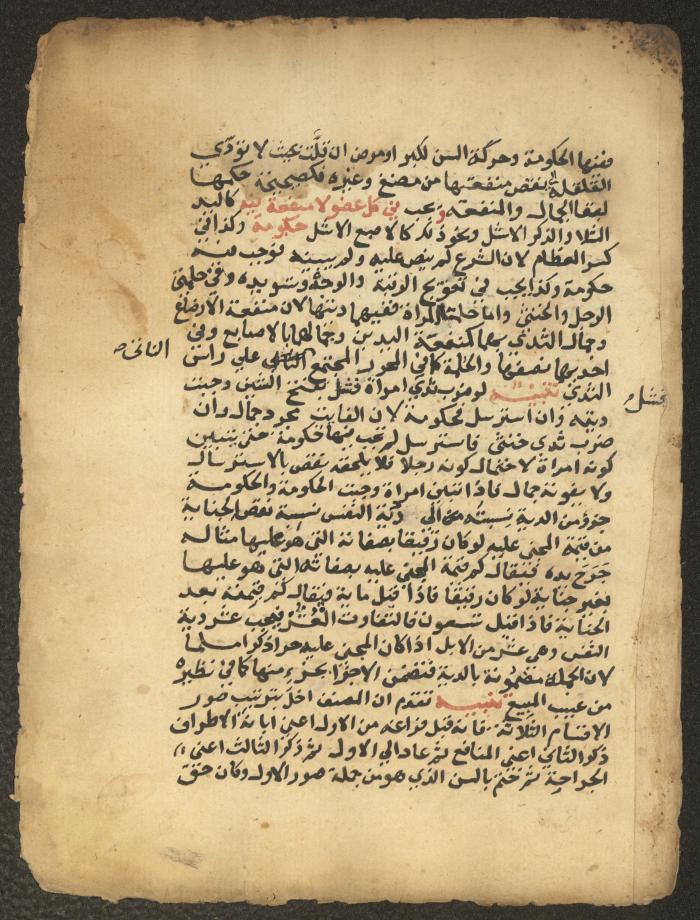 ففيها الحكومة وحركة السن لكبر او مرض ان قلت بحيث لا تؤدي
القلقلة لنقص منفعتها من مضغ وغيره فكصحيحة حكمها
لبقا الجمال والمنفعة وتجب في كل عضو لا منفعة فيه كاليد
الشلا والذكر الاشل ونحو ذلك كالاصبع الاشل حكومة وكذا في
كسر العظام لان الشرع لم ينص عليه ولم يبينه فوجب فيه
حكومة وكذا يجب في تعويج الرقبة والوجه وتسويده وفي حلمتي
الرجل والخنثى واما حلمتا المراة ففيهما ديتها لان منفعة الارضاع
وجمال الثدي بهما كمنفعة اليدين وجمالهما بالاصابع وفي
احديهما نصفها والحلمة كما في المحرر المجتمع على راس
الناتي صح
الثدي تنبيه لو ضرب ثدي امراة فشل بفتح الشين وجبت
فشل
ديته وان استرسل فحكومة لان الفايت مجرد جمال وان
ضرب ثدي خنثى فاسترسل لم تجب فيها حكومة حتى يتبين
كونه امراة لاحتمال كونه رجلا فلا يلحقه نقص بالاسترسال
ولا يفوته جمال فاذا تبين امراة وجبت الحكومة والحكومة
جزؤ من الدية نسبته الى دية النفس نسبة نقص الجناية
من قيمة المجني عليه لو كان رقيقا بصفاته التي هو عليها مثاله
جرح يده فيقال كم قيمة المجني عليه بصفاته التي هو عليها
بغير جناية لو كان رقيقا فاذا قيل ماية فيقال كم قيمته بعد
الجناية فاذا قيل تسعون فالتفاوت العشر فيجب عشر دية
النفس وهي عشر من الابل اذا كان المجني عليه حرا ذكرا مسلما
لان الجملة مضمونة بالدية فتضمن الاجزا بجزء منها كما في نظيره
من عيب المبيع تنبيه تقدم ان المصنف اخل بترتيب صور
الاقسام الثلاثة فانه قبل فراغه من الاول اعني ابانة الاطراف
ذكر الثاني اعني المنافع ثم عاد الي الاول ثم ذكر الثالث اعني
الجراحة ثم ختم بالسن الذي هو من جملة صور الاول وكان حق